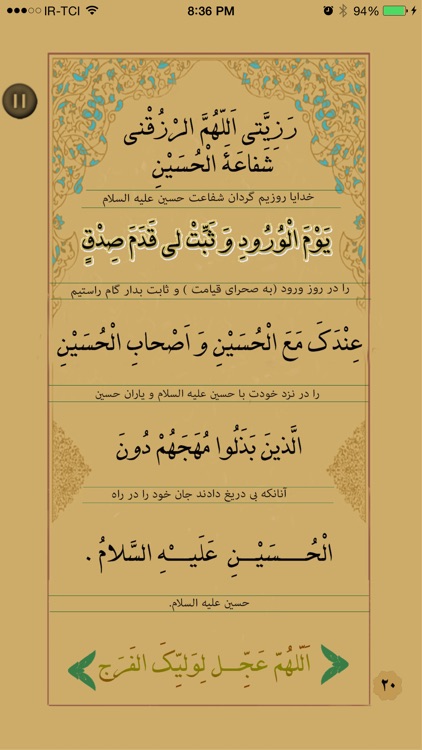 IR-TCI 8:36 PM 94%
رَزِيَّتى اَللّهُمَّ الرْزُقْنى
شَفاعَةَ الْحُسَيْنِ
خدایا روزیم گردان شفاعت حسین علیه السلام
يَوْمَ الْوُرُودِ وَ ثَبِّتْ لى قَدَمَ صِدْقٍ
را در روز ورود (به صحرای قیامت ) و ثابت بدار گام راستیم
عِنْدَکَ مَعَ الْحُسَيْنِ وَ اَصْحابِ الْحُسَيْنِ
را در نزد خودت با حسین علیه السلام و یاران حسین
الَّذينَ بَذَلُوا مُهَجَهُمْ دُونَ
آنانکه بی دریغ دادند جان خود را در راه
الْحُـــسَـيْـنِ عَلَيْـــهِ السَّلامُ .
حسین علیه السلام.
اَللّهُمّ عَجِّــل لِوَلیِّکَ الفَرَج
۲۰